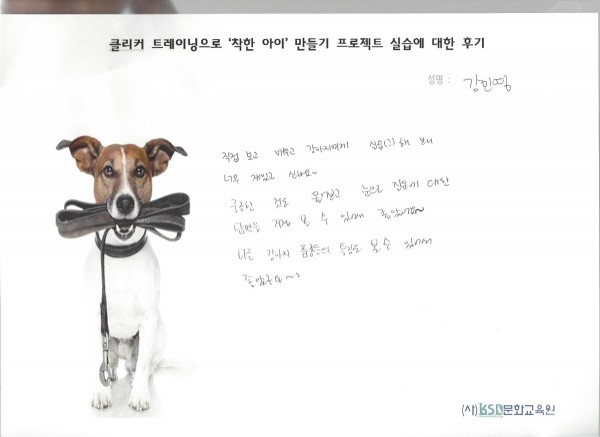 클리커 트레이닝으로 '착한 아이' 만들기 프로젝트 실습에 대한 후기
성명 : 강민영
직접 보고 배우고 강아지에게 실습(?)해 보니
너무 재밌고 신나요~
궁금한 것도 물어보고 눈으로 직접 대한
답변을 직접 볼 수 있어서 좋았어요~
다른 강아지 품종들의 특징도 볼 수 있어서
좋았구요~
(사)KSD문화교육원